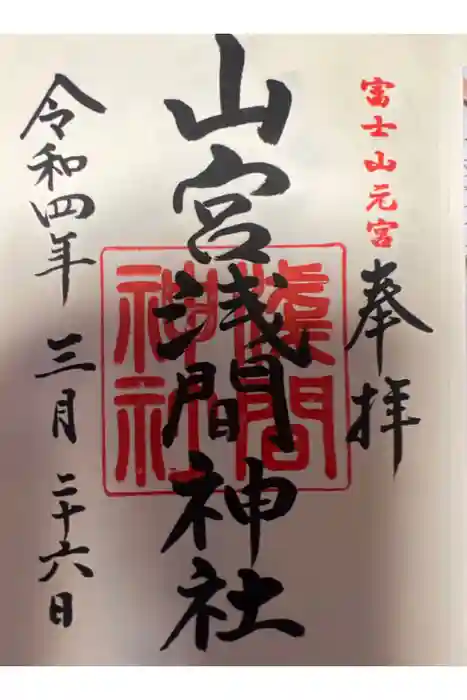 富士山元宮
奉拝
山宮浅間神社
淺間神社
令和四年三月二十六日